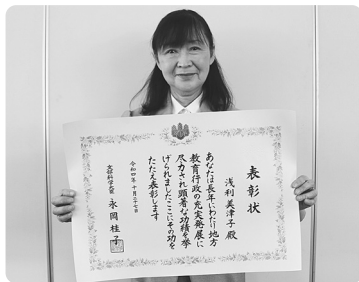 表彰状
浅利美津子殿
あなたは長年にわたり地方
教育行政の充実発展に
尽力され顕著な功績を挙
げられましたここにその功を
たたえ表彰します
令和四年十月二十七日
文部科学大臣 永岡桂子